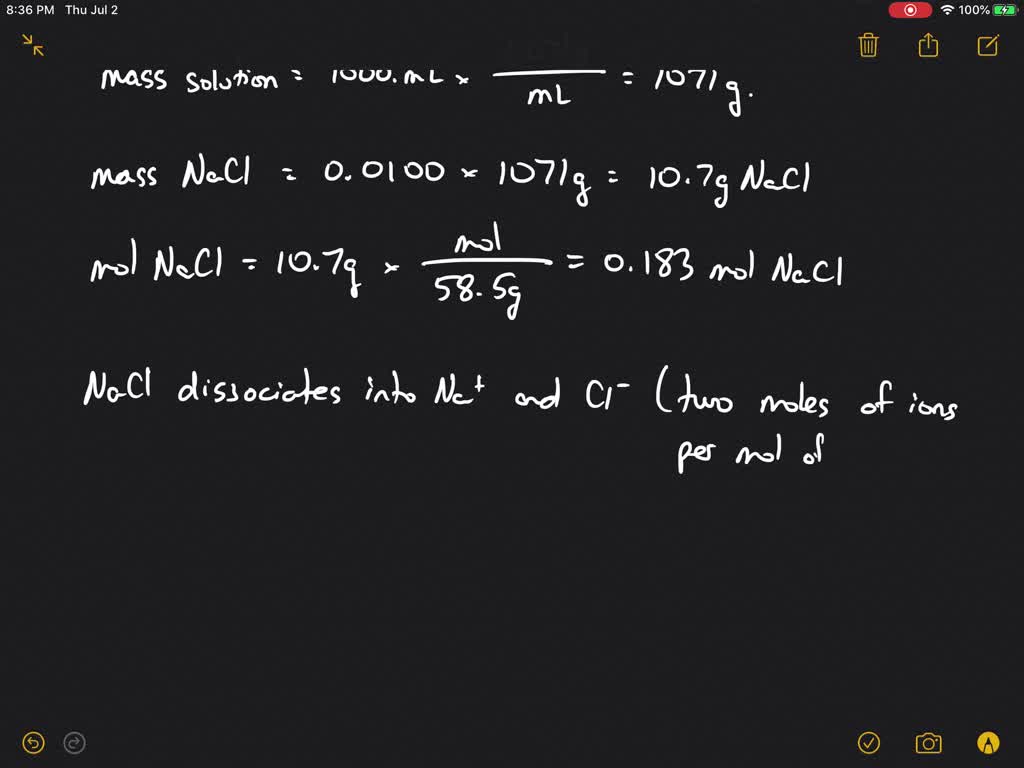 8:36 PM Thu Jul 2
100%
mass solution = 1000. mL × / mL = 1071 g.
mass NaCl = 0.0100 × 1071g = 10.7g NaCl
mol NaCl = 10.7g × mol / 58.5g = 0.183 mol NaCl
NaCl dissociates into Na⁺ and Cl⁻ (two moles of ions
per mol of